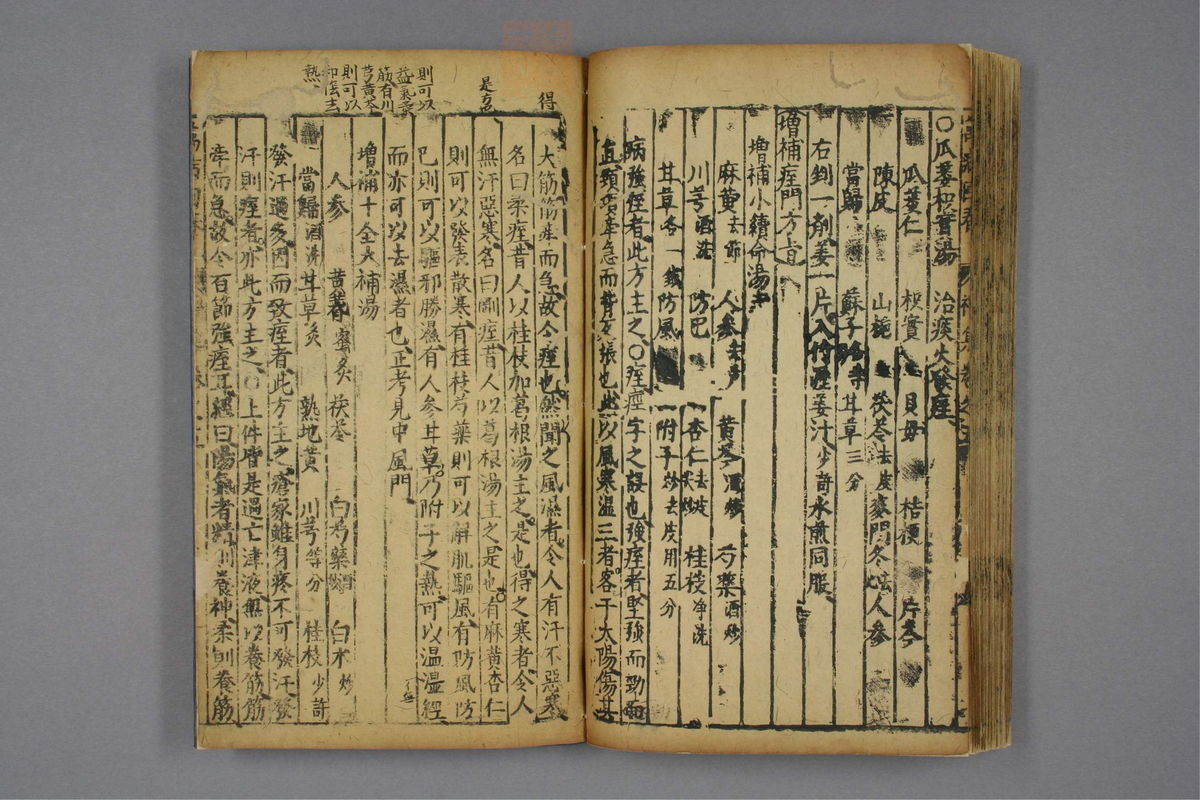 〇瓜蔞枳實湯　治痰火發痓
瓜蔞仁　枳實　貝母　桔梗　片芩
陳皮　山梔　茯苓去皮　麥門冬　人參
當歸　蘇子各等　甘草三分
右剉一劑姜一片入竹瀝姜汁少許水煎同服
增補痓門方旨
增補小續命湯
麻黃去節　人參去芦　黃芩酒炒　芍藥酒炒
川芎酒洗　防巳　杏仁去皮炒　桂枝净洗
甘草各一錢　防風　附子炒去皮用五分
病強痓者此方主之〇痓痓字之誤也強痓者堅強而勁
直頸項牽急而背反張也此以風寒濕三者客于太陽傷其
大筋筋牽而急故令痓也然聞之風濕者令人有汗不惡寒
名曰柔痓昔人以桂枝加葛根湯主之是也得之寒者令人
無汗惡寒名曰剛痓昔人以葛根湯主之是也有麻黃杏仁
則可以發表散寒有桂枝芍藥則可以解肌驅風有防風防
巳則可以驅邪勝濕有人參甘草乃附子之熱可以温温經
而亦可以去濕者也正考見中風門
增補十全大補湯
人參　黃蓍蜜炙　茯苓　白芍藥　白朮炒
當歸酒洗　甘草炙　熟地黃　川芎等分　桂枝少許
發汗過多因而致痓者此方主之瘡家雖身疼不可發汗發
汗則痓者亦此方主之〇上件皆是過亡津液無以養筋筋
牽而急故令百節強痓耳經曰陽氣者精則養神柔則養筋
得
是方也
則可以
益氣
筋有川
芎黃芩
則可以
熱